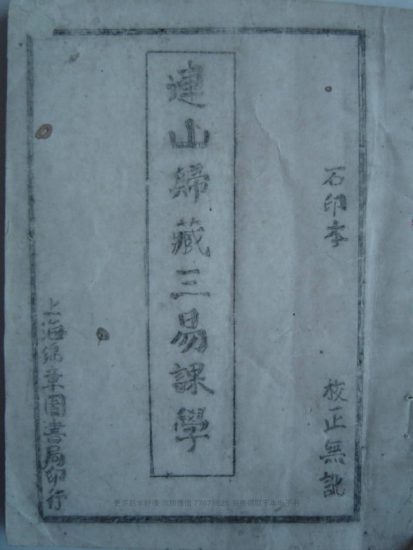 石印本
校正無訛
連山歸藏三易課學
上海錦章圖書局印行